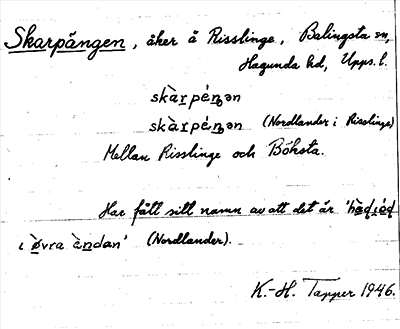 Skarpängen, åker å Risslinge, Balingsta sn,
Hagunda hd, Upps. l.
skàrpéŋən
skàrpéŋən (Nordlander i Risslinge)
Mellan Risslinge och Böksta.
Har fått sitt namn av att det är
i øvra ändan' (Nordlander).
K.-H. Tapper 1946.